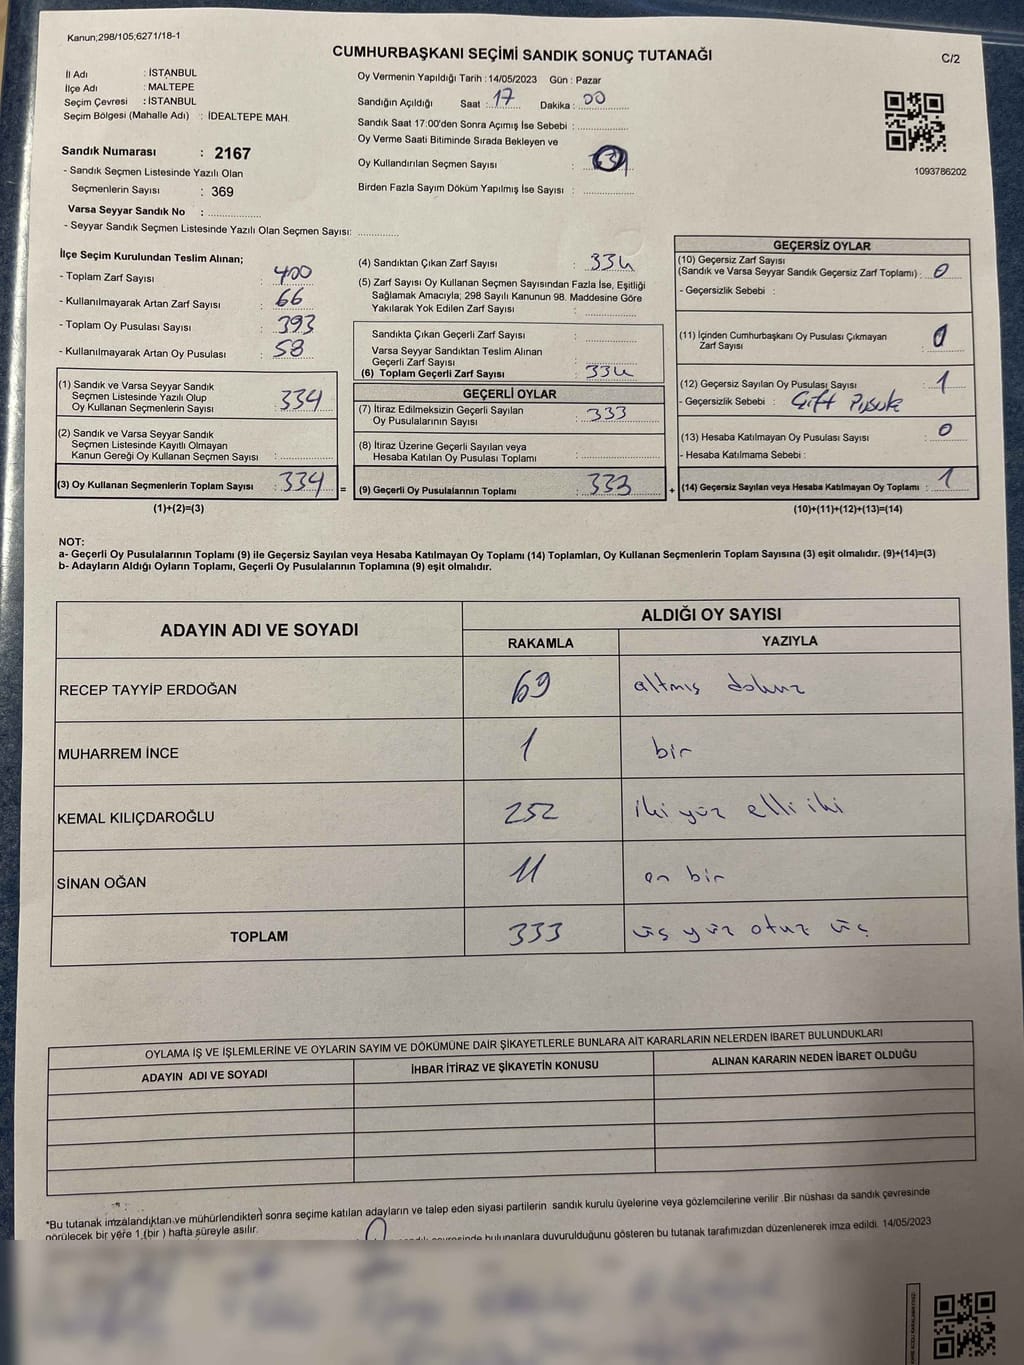 Kanun;298/105,6271/18-1
CUMHURBAŞKANI SEÇİMİ SANDIK SONUÇ TUTANAĞI
C/2
İl Adı : İSTANBUL
İlçe Adı : MALTEPE
Seçim Çevresi : İSTANBUL
Seçim Bölgesi (Mahalle Adı) : İDEALTEPE MAH.
Sandık Numarası : 2167
- Sandık Seçmen Listesinde Yazılı Olan
Seçmenlerin Sayısı : 369
Varsa Seyyar Sandık No :
- Seyyar Sandık Seçmen Listesinde Yazılı Olan Seçmen Sayısı:
Oy Vermenin Yapıldığı Tarih : 14/05/2023 Gün : Pazar
Sandığın Açıldığı Saat : 17 Dakika : 00
Sandık Saat 17:00'den Sonra Açımış İse Sebebi :
Oy Verme Saati Bitiminde Sırada Bekleyen ve
Oy Kullandırılan Seçmen Sayısı :
Birden Fazla Sayım Döküm Yapılmış İse Sayısı :
1093786202
İlçe Seçim Kurulundan Teslim Alınan;
- Toplam Zarf Sayısı : 400
- Kullanılmayarak Artan Zarf Sayısı : 66
- Toplam Oy Pusulası Sayısı : 393
- Kullanılmayarak Artan Oy Pusulası : 58
(1) Sandık ve Varsa Seyyar Sandık
Seçmen Listesinde Yazılı Olup
Oy Kullanan Seçmenlerin Sayısı : 334
(2) Sandık ve Varsa Seyyar Sandık
Seçmen Listesinde Kayıtlı Olmayan
Kanun Gereği Oy Kullanan Seçmen Sayısı :
(3) Oy Kullanan Seçmenlerin Toplam Sayısı : 334 =
(1)+(2)=(3)
(4) Sandıktan Çıkan Zarf Sayısı : 334
(5) Zarf Sayısı Oy Kullanan Seçmen Sayısından Fazla İse, Eşitliği
Sağlamak Amacıyla; 298 Sayılı Kanunun 98. Maddesine Göre
Yakılarak Yok Edilen Zarf Sayısı :
Sandıkta Çıkan Geçerli Zarf Sayısı :
Varsa Seyyar Sandıktan Teslim Alınan
Geçerli Zarf Sayısı :
(6) Toplam Geçerli Zarf Sayısı : 334
GEÇERLİ OYLAR
(7) İtiraz Edilmeksizin Geçerli Sayılan
Oy Pusulalarının Sayısı : 333
(8) İtiraz Üzerine Geçerli Sayılan veya
Hesaba Katılan Oy Pusulası Toplamı :
(9) Geçerli Oy Pusulalarının Toplamı : 333 +
GEÇERSİZ OYLAR
(10) Geçersiz Zarf Sayısı
(Sandık ve Varsa Seyyar Sandık Geçersiz Zarf Toplamı) : 0
- Geçersizlik Sebebi :
(11) İçinden Cumhurbaşkanı Oy Pusulası Çıkmayan
Zarf Sayısı : 0
(12) Geçersiz Sayılan Oy Pusulası Sayısı : 1
- Geçersizlik Sebebi : Çift Pusula
(13) Hesaba Katılmayan Oy Pusulası Sayısı : 0
- Hesaba Katılmama Sebebi :
(14) Geçersiz Sayılan veya Hesaba Katılmayan Oy Toplamı : 1
(10)+(11)+(12)+(13)=(14)
NOT:
a- Geçerli Oy Pusulalarının Toplamı (9) ile Geçersiz Sayılan veya Hesaba Katılmayan Oy Toplamı (14) Toplamları, Oy Kullanan Seçmenlerin Toplam Sayısına (3) eşit olmalıdır. (9)+(14)=(3)
b- Adayların Aldığı Oyların Toplamı, Geçerli Oy Pusulalarının Toplamına (9) eşit olmalıdır.
ADAYIN ADI VE SOYADI
ALDIĞI OY SAYISI
RAKAMLA YAZIYLA
RECEP TAYYİP ERDOĞAN 69 altmış dokuz
MUHARREM İNCE 1 bir
KEMAL KILIÇDAROĞLU 252 iki yüz elli iki
SİNAN OĞAN 11 on bir
TOPLAM 333 üç yüz otuz üç
OYLAMA İŞ VE İŞLEMLERİNE VE OYLARIN SAYIM VE DÖKÜMÜNE DAİR ŞİKAYETLERLE BUNLARA AİT KARARLARIN NELERDEN İBARET BULUNDUKLARI
ADAYIN ADI VE SOYADI İHBAR İTİRAZ VE ŞİKAYETİN KONUSU ALINAN KARARIN NEDEN İBARET OLDUĞU
*Bu tutanak imzalandıktan ve mühürlendikten sonra seçime katılan adayların ve talep eden siyasi partilerin sandık kurulu üyelerine veya gözlemcilerine verilir .Bir nüshası da sandık çevresinde
görülecek bir yere 1 (bir ) hafta süreyle asılır.
bulunanlara duyurulduğunu gösteren bu tutanak tarafımızdan düzenlenerek imza edildi. 14/05/2023